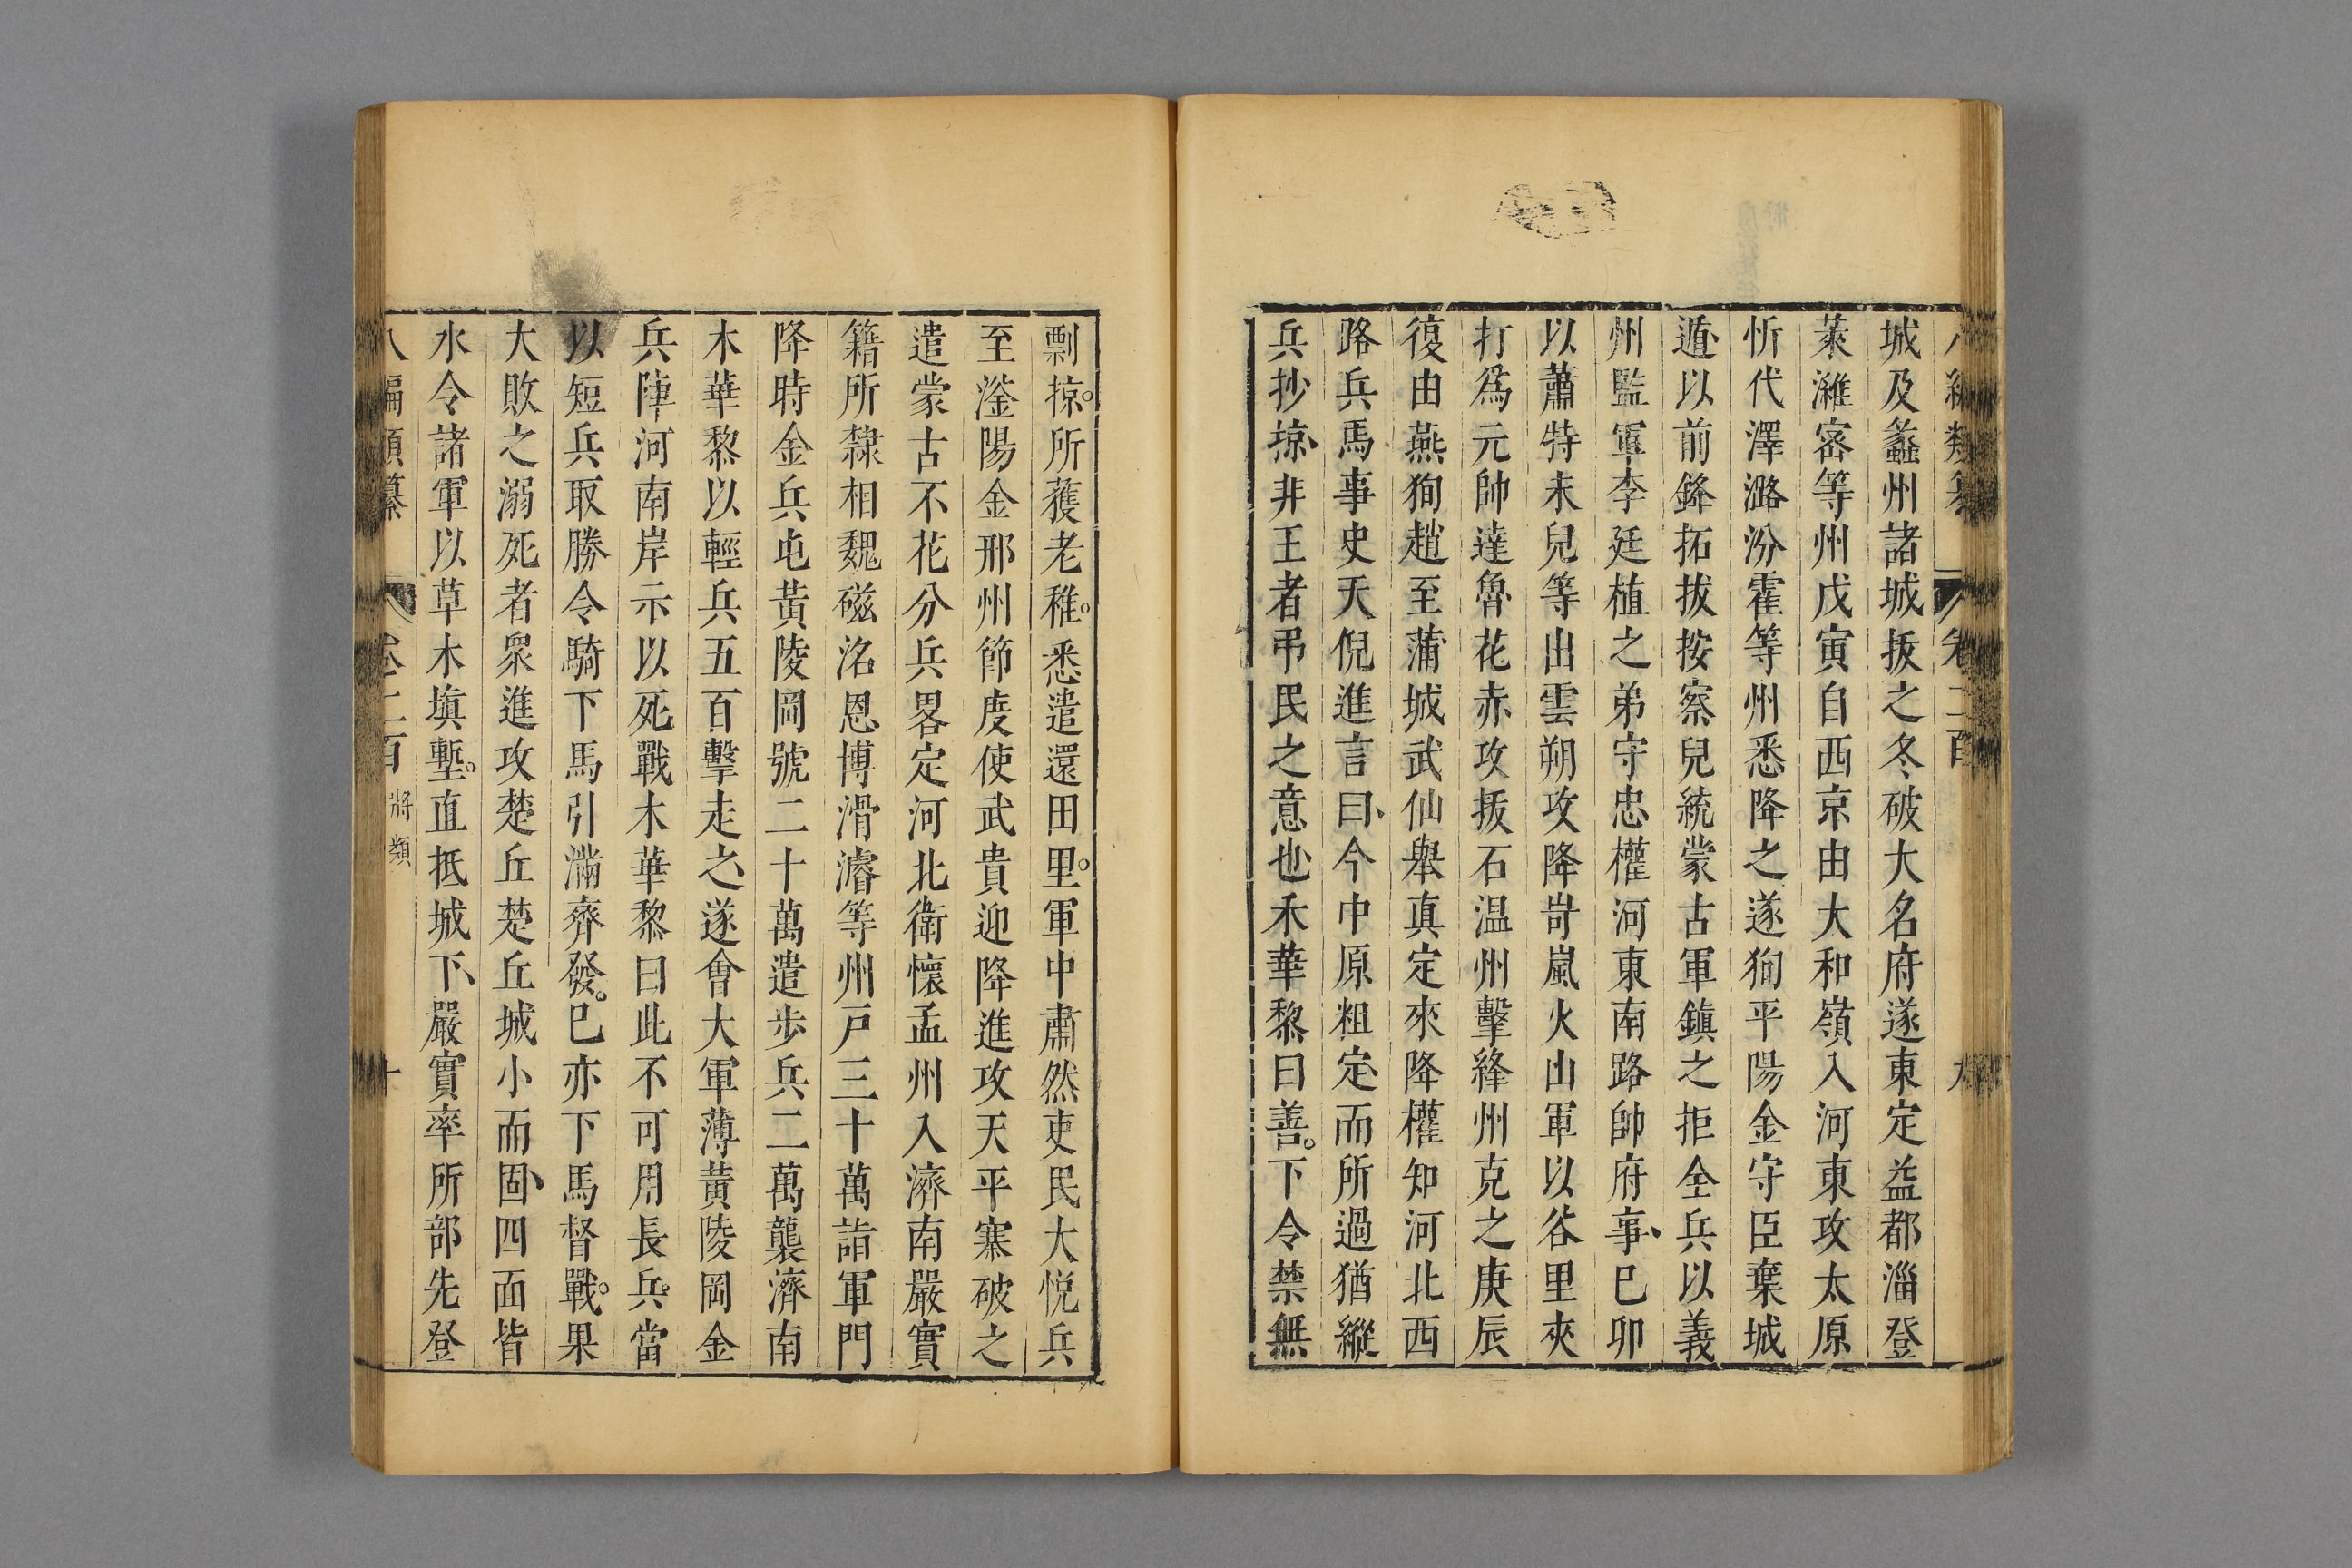 城及蠡州諸城㧞之冬破大名府遂東定益都淄登
萊濰宻等州戊寅自西京由大和嶺入河東攻太原
忻代澤潞汾霍等州悉降之遂狥平陽金守臣棄城
遁以前鋒拓拔按察兒統蒙古軍鎮之拒全兵以義
州監軍李廷植之弟守忠權河東南路帥府事巳卯
以蕭特末兒等出雲朔攻降岢嵐火山軍以谷里夾
打爲元帥達魯花赤攻㧞石温州擊絳州克之庚辰
復由燕狥趙至蒲城武仙舉真定來降權知河北西
路兵馬事史天倪進言曰今中原粗定而所過猶縱
兵抄掠非王者弔民之意也木華黎曰善下令禁無
剽掠所蒦老稚悉遣還田里軍中肅然吏民大悅兵
至滏陽金邢州節度使武貴迎降進攻天平寨破之
遣蒙古不花分兵畧定河北衛懷孟州入濟南嚴實
籍所隸相魏磁洺恩博滑濬等州戸三十萬詣軍門
降時金兵屯黃陵岡號二十萬遣步兵二萬襲濟南
木華黎以輕兵五百擊走之遂會大軍薄黃陵岡金
兵陣河南岸示以死戰木華黎曰此不可用長兵當
以短兵取勝令騎下馬引滿齊發巳亦下馬督戰果
大敗之溺死者衆進攻楚丘楚丘城小而固四面皆
水令諸軍以草木塡塹直抵城下嚴實率所部先登
八編類纂 卷二百 將類 十